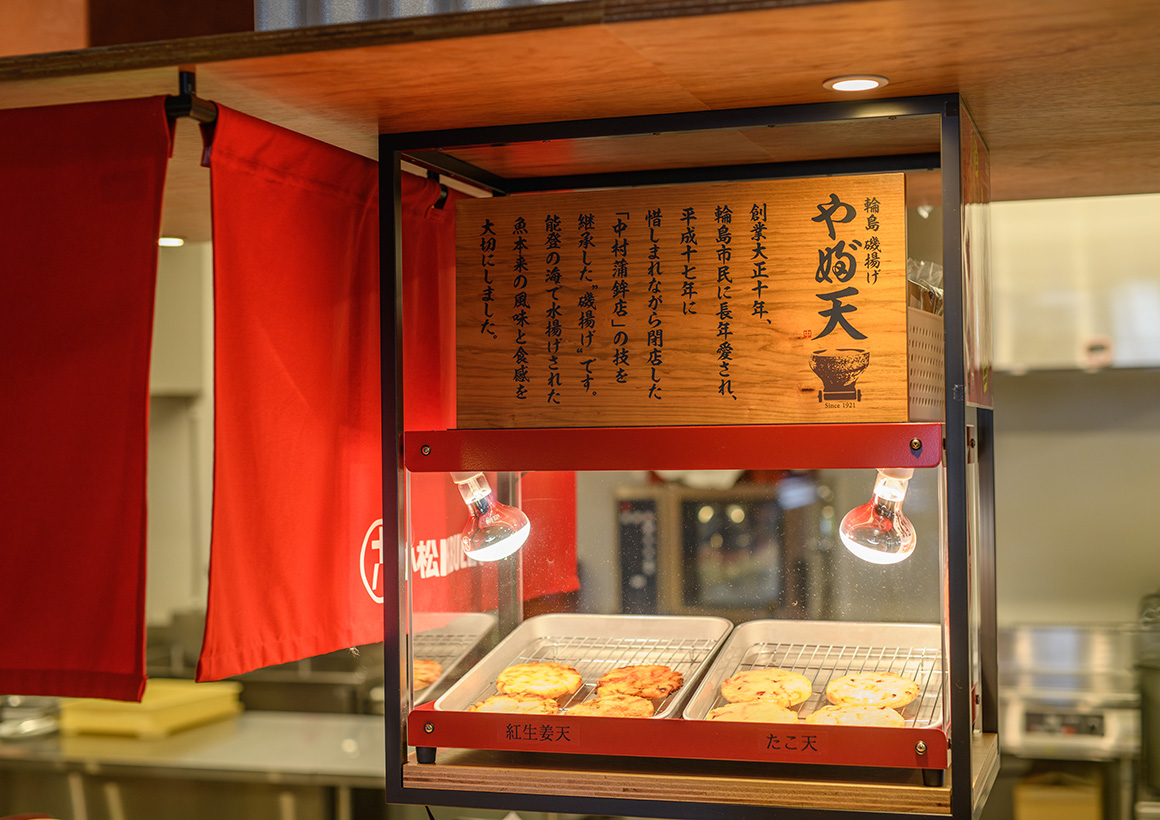 輪島 磯揚げ
やぶ天
Since 1921
創業大正十年、
輪島市民に長年愛され、
平成十七年に
惜しまれながら閉店した
「中村蒲鉾店」の技を
継承した“磯揚げ”です。
能登の海で水揚げされた
魚本来の風味と食感を
大切にしました。
松
紅生姜天
たこ天